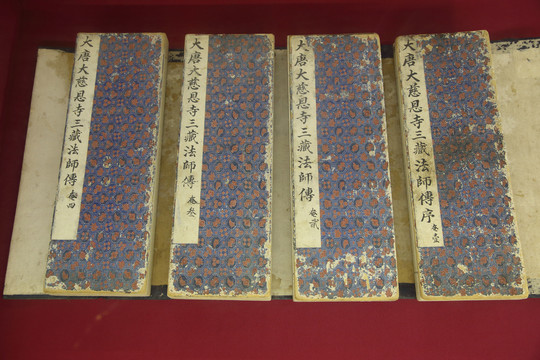 大唐大慈恩寺三藏法師傳序 卷壹
大唐大慈恩寺三藏法師傳 卷貳
大唐大慈恩寺三藏法師傳 卷叁
大唐大慈恩寺三藏法師傳 卷四